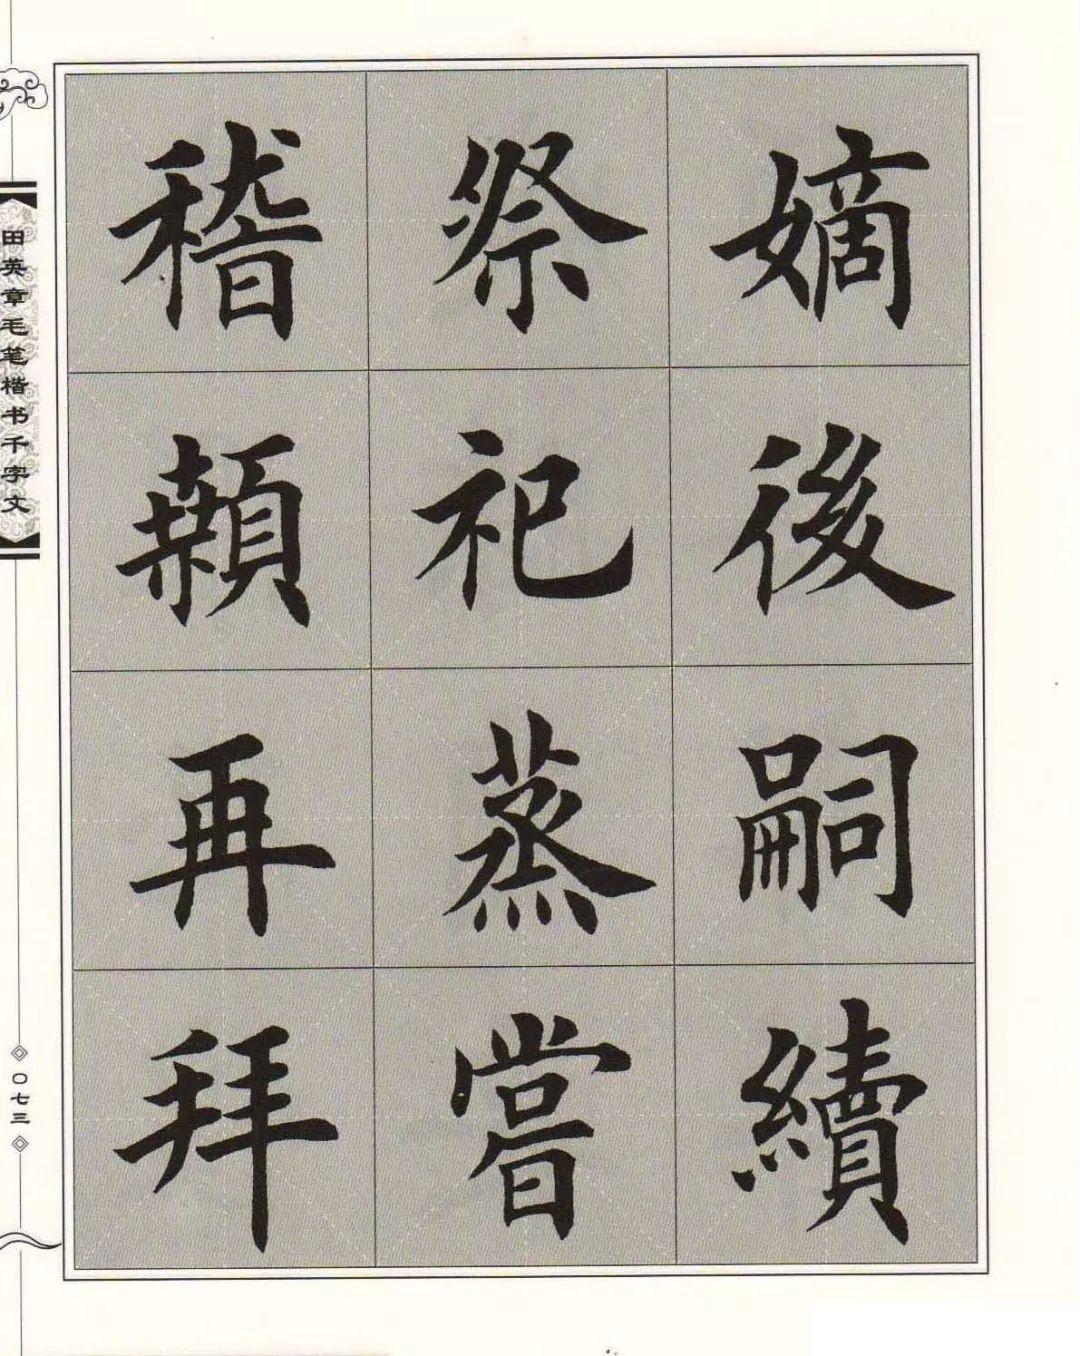 嫡後嗣續
祭祀蒸嘗
稽顙再拜
田英章毛笔楷书千字文
〇七三